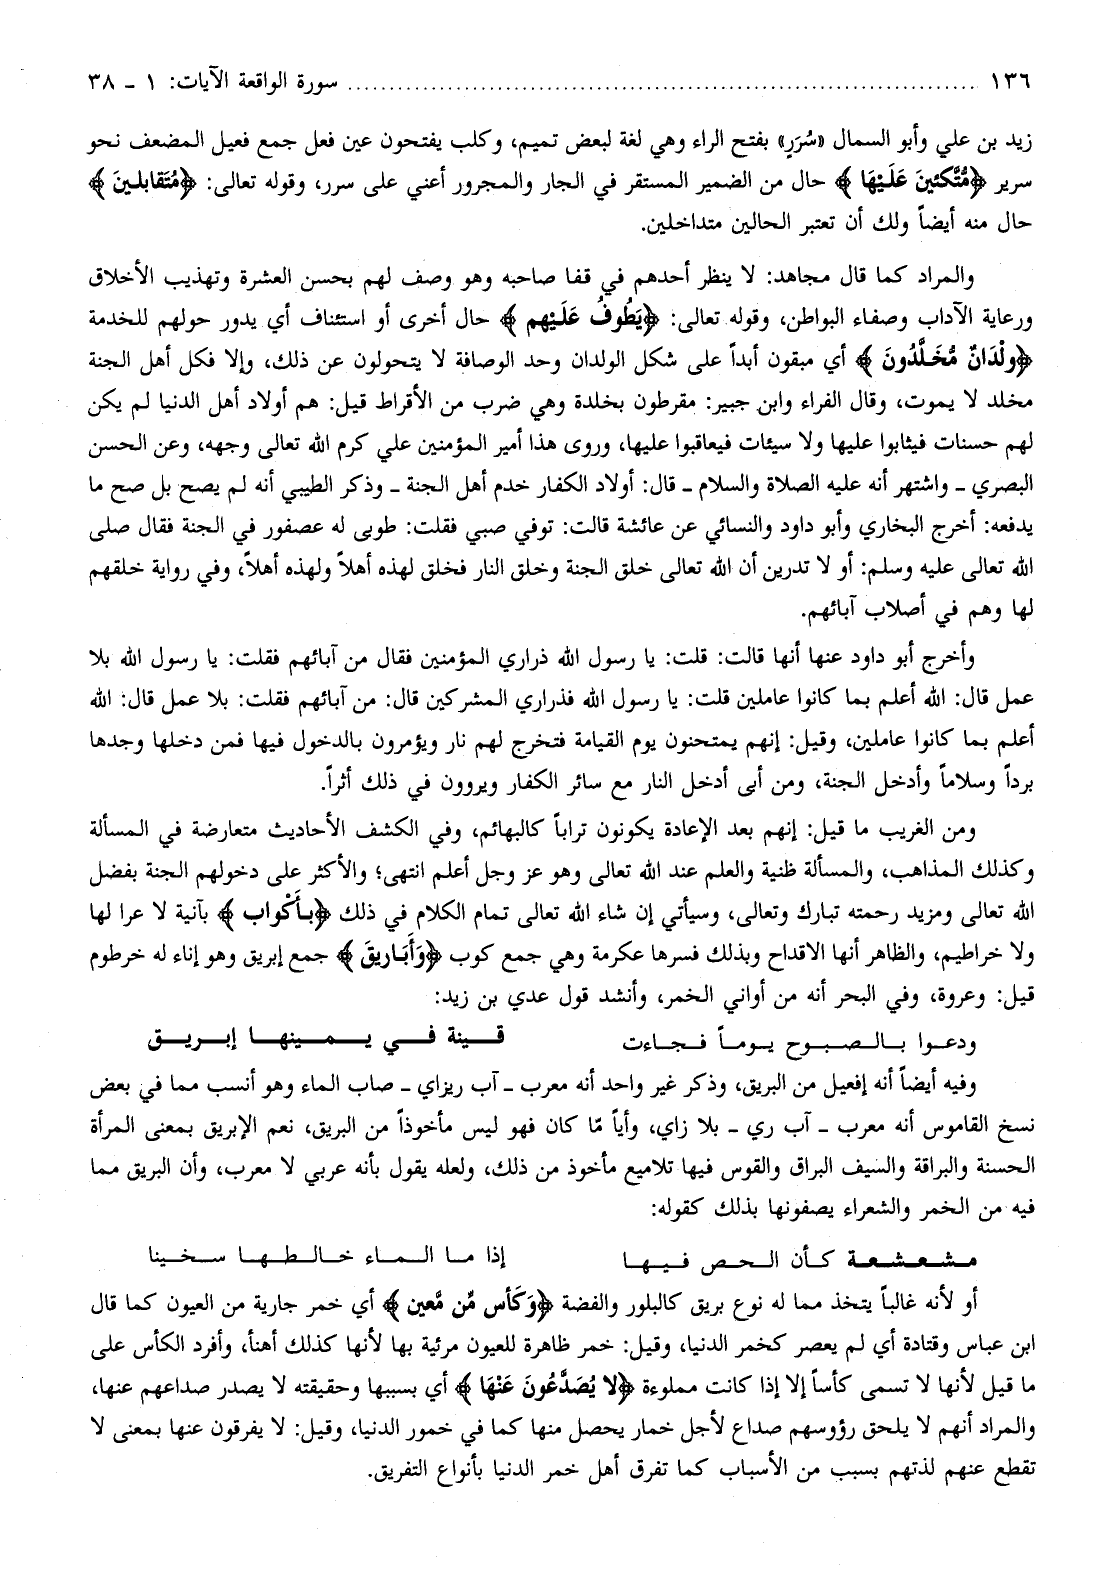 ١٣٦ ........................................ سورة الواقعة الآيات: ١ ـ ٣٨
زيد بن علي وأبو السمال «سُرَرٍ» بفتح الراء وهي لغة لبعض تميم، وكلب يفتحون عين فعل جمع فعيل المضعف نحو
سرير ﴿مُتَّكئينَ عَلَيْهَا﴾ حال من الضمير المستقر في الجار والمجرور أعني على سرر، وقوله تعالى: ﴿مُتَقابلينَ﴾
حال منه أيضاً ولك أن تعتبر الحالين متداخلين.
والمراد كما قال مجاهد: لا ينظر أحدهم في قفا صاحبه وهو وصف لهم بحسن العشرة وتهذيب الأخلاق
ورعاية الآداب وصفاء البواطن، وقوله تعالى: ﴿يَطُوفُ عَلَيْهم﴾ حال أخرى أو استئناف أي يدور حولهم للخدمة
﴿ولْدَانٌ مُخَلَّدُونَ﴾ أي مبقون أبداً على شكل الولدان وحد الوصافة لا يتحولون عن ذلك، وإلا فكل أهل الجنة
مخلد لا يموت، وقال الفراء وابن جبير: مقرطون بخلدة وهي ضرب من الأقراط قيل: هم أولاد أهل الدنيا لم يكن
لهم حسنات فيثابوا عليها ولا سيئات فيعاقبوا عليها، وروى هذا أمير المؤمنين علي كرم الله تعالى وجهه، وعن الحسن
البصري ـ واشتهر أنه عليه الصلاة والسلام ـ قال: أولاد الكفار خدم أهل الجنة ـ وذكر الطيبي أنه لم يصح بل صح ما
يدفعه: أخرج البخاري وأبو داود والنسائي عن عائشة قالت: توفي صبي فقلت: طوبى له عصفور في الجنة فقال صلى
الله تعالى عليه وسلم: أو لا تدرين أن الله تعالى خلق الجنة وخلق النار فخلق لهذه أهلاً ولهذه أهلاً، وفي رواية خلقهم
لها وهم في أصلاب آبائهم.
وأخرج أبو داود عنها أنها قالت: قلت: يا رسول الله ذراري المؤمنين فقال من آبائهم فقلت: يا رسول الله بلا
عمل قال: الله أعلم بما كانوا عاملين قلت: يا رسول الله فذراري المشركين قال: من آبائهم فقلت: بلا عمل قال: الله
أعلم بما كانوا عاملين، وقيل: إنهم يمتحنون يوم القيامة فتخرج لهم نار ويؤمرون بالدخول فيها فمن دخلها وجدها
برداً وسلاماً وأدخل الجنة، ومن أبى أدخل النار مع سائر الكفار ويروون في ذلك أثراً.
ومن الغريب ما قيل: إنهم بعد الإعادة يكونون تراباً كالبهائم، وفي الكشف الأحاديث متعارضة في المسألة
وكذلك المذاهب، والمسألة ظنية والعلم عند الله تعالى وهو عز وجل أعلم انتهى؛ والأكثر على دخولهم الجنة بفضل
الله تعالى ومزيد رحمته تبارك وتعالى، وسيأتي إن شاء الله تعالى تمام الكلام في ذلك ﴿بأَكْواب﴾ بآنية لا عرا لها
ولا خراطيم، والظاهر أنها الاقداح وبذلك فسرها عكرمة وهي جمع كوب ﴿وَأَبَاريقَ﴾ جمع إبريق وهو إناء له خرطوم
قيل: وعروة، وفي البحر أنه من أواني الخمر، وأنشد قول عدي بن زيد:
ودعوا بالصبوح يوماً فجاءت قينة في يمينها إبريق
وفيه أيضاً أنه إفعيل من البريق، وذكر غير واحد أنه معرب ـ آب ريزاي ـ صاب الماء وهو أنسب مما في بعض
نسخ القاموس أنه معرب ـ آب ري ـ بلا زاي، وأياً مّا كان فهو ليس مأخوذاً من البريق، نعم الإبريق بمعنى المرأة
الحسنة والبراقة والسيف البراق والقوس فيها تلاميع مأخوذ من ذلك، ولعله يقول بأنه عربي لا معرب، وأن البريق مما
فيه من الخمر والشعراء يصفونها بذلك كقوله:
مشعشعة كأن الحص فيها إذا ما الماء خالطها سخينا
أو لأنه غالباً يتخذ مما له نوع بريق كالبلور والفضة ﴿وَكَأس مّن مَّعين﴾ أي خمر جارية من العيون كما قال
ابن عباس وقتادة أي لم يعصر كخمر الدنيا، وقيل: خمر ظاهرة للعيون مرئية بها لأنها كذلك أهنأ، وأفرد الكأس على
ما قيل لأنها لا تسمى كأساً إلا إذا كانت مملوءة ﴿لا يُصَدَّعُونَ عَنْهَا﴾ أي بسببها وحقيقته لا يصدر صداعهم عنها،
والمراد أنهم لا يلحق رؤوسهم صداع لأجل خمار يحصل منها كما في خمور الدنيا، وقيل: لا يفرقون عنها بمعنى لا
تقطع عنهم لذتهم بسبب من الأسباب كما تفرق أهل خمر الدنيا بأنواع التفريق.